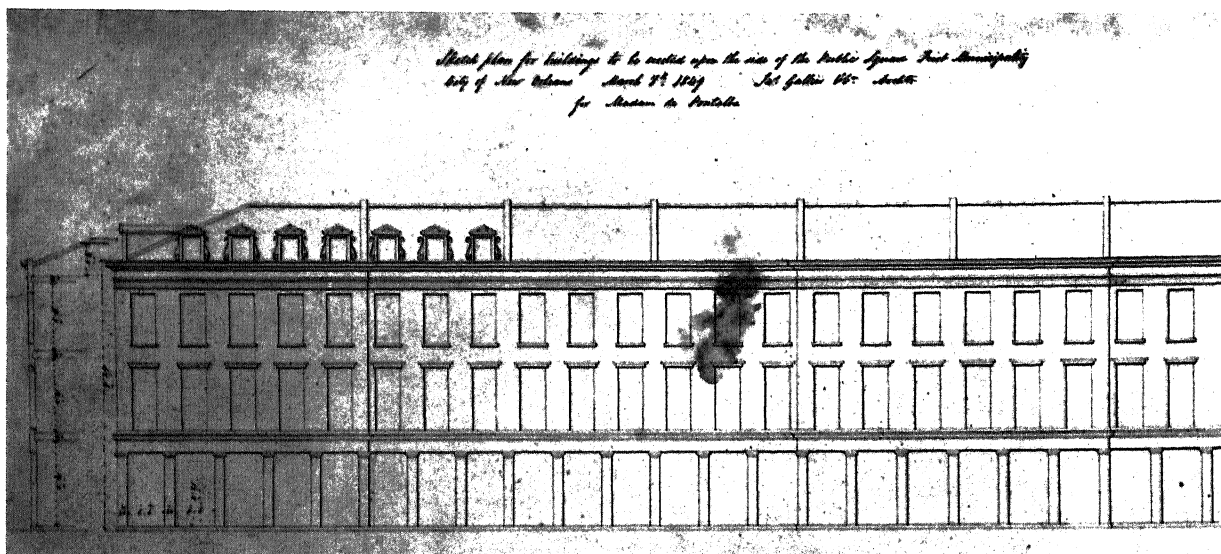 Sketch plan for buildings to be erected upon the side of the Public Square First Municipality
City of New Orleans March 8th 1849 Jas Gallier Archte
for Madam de Pontalba